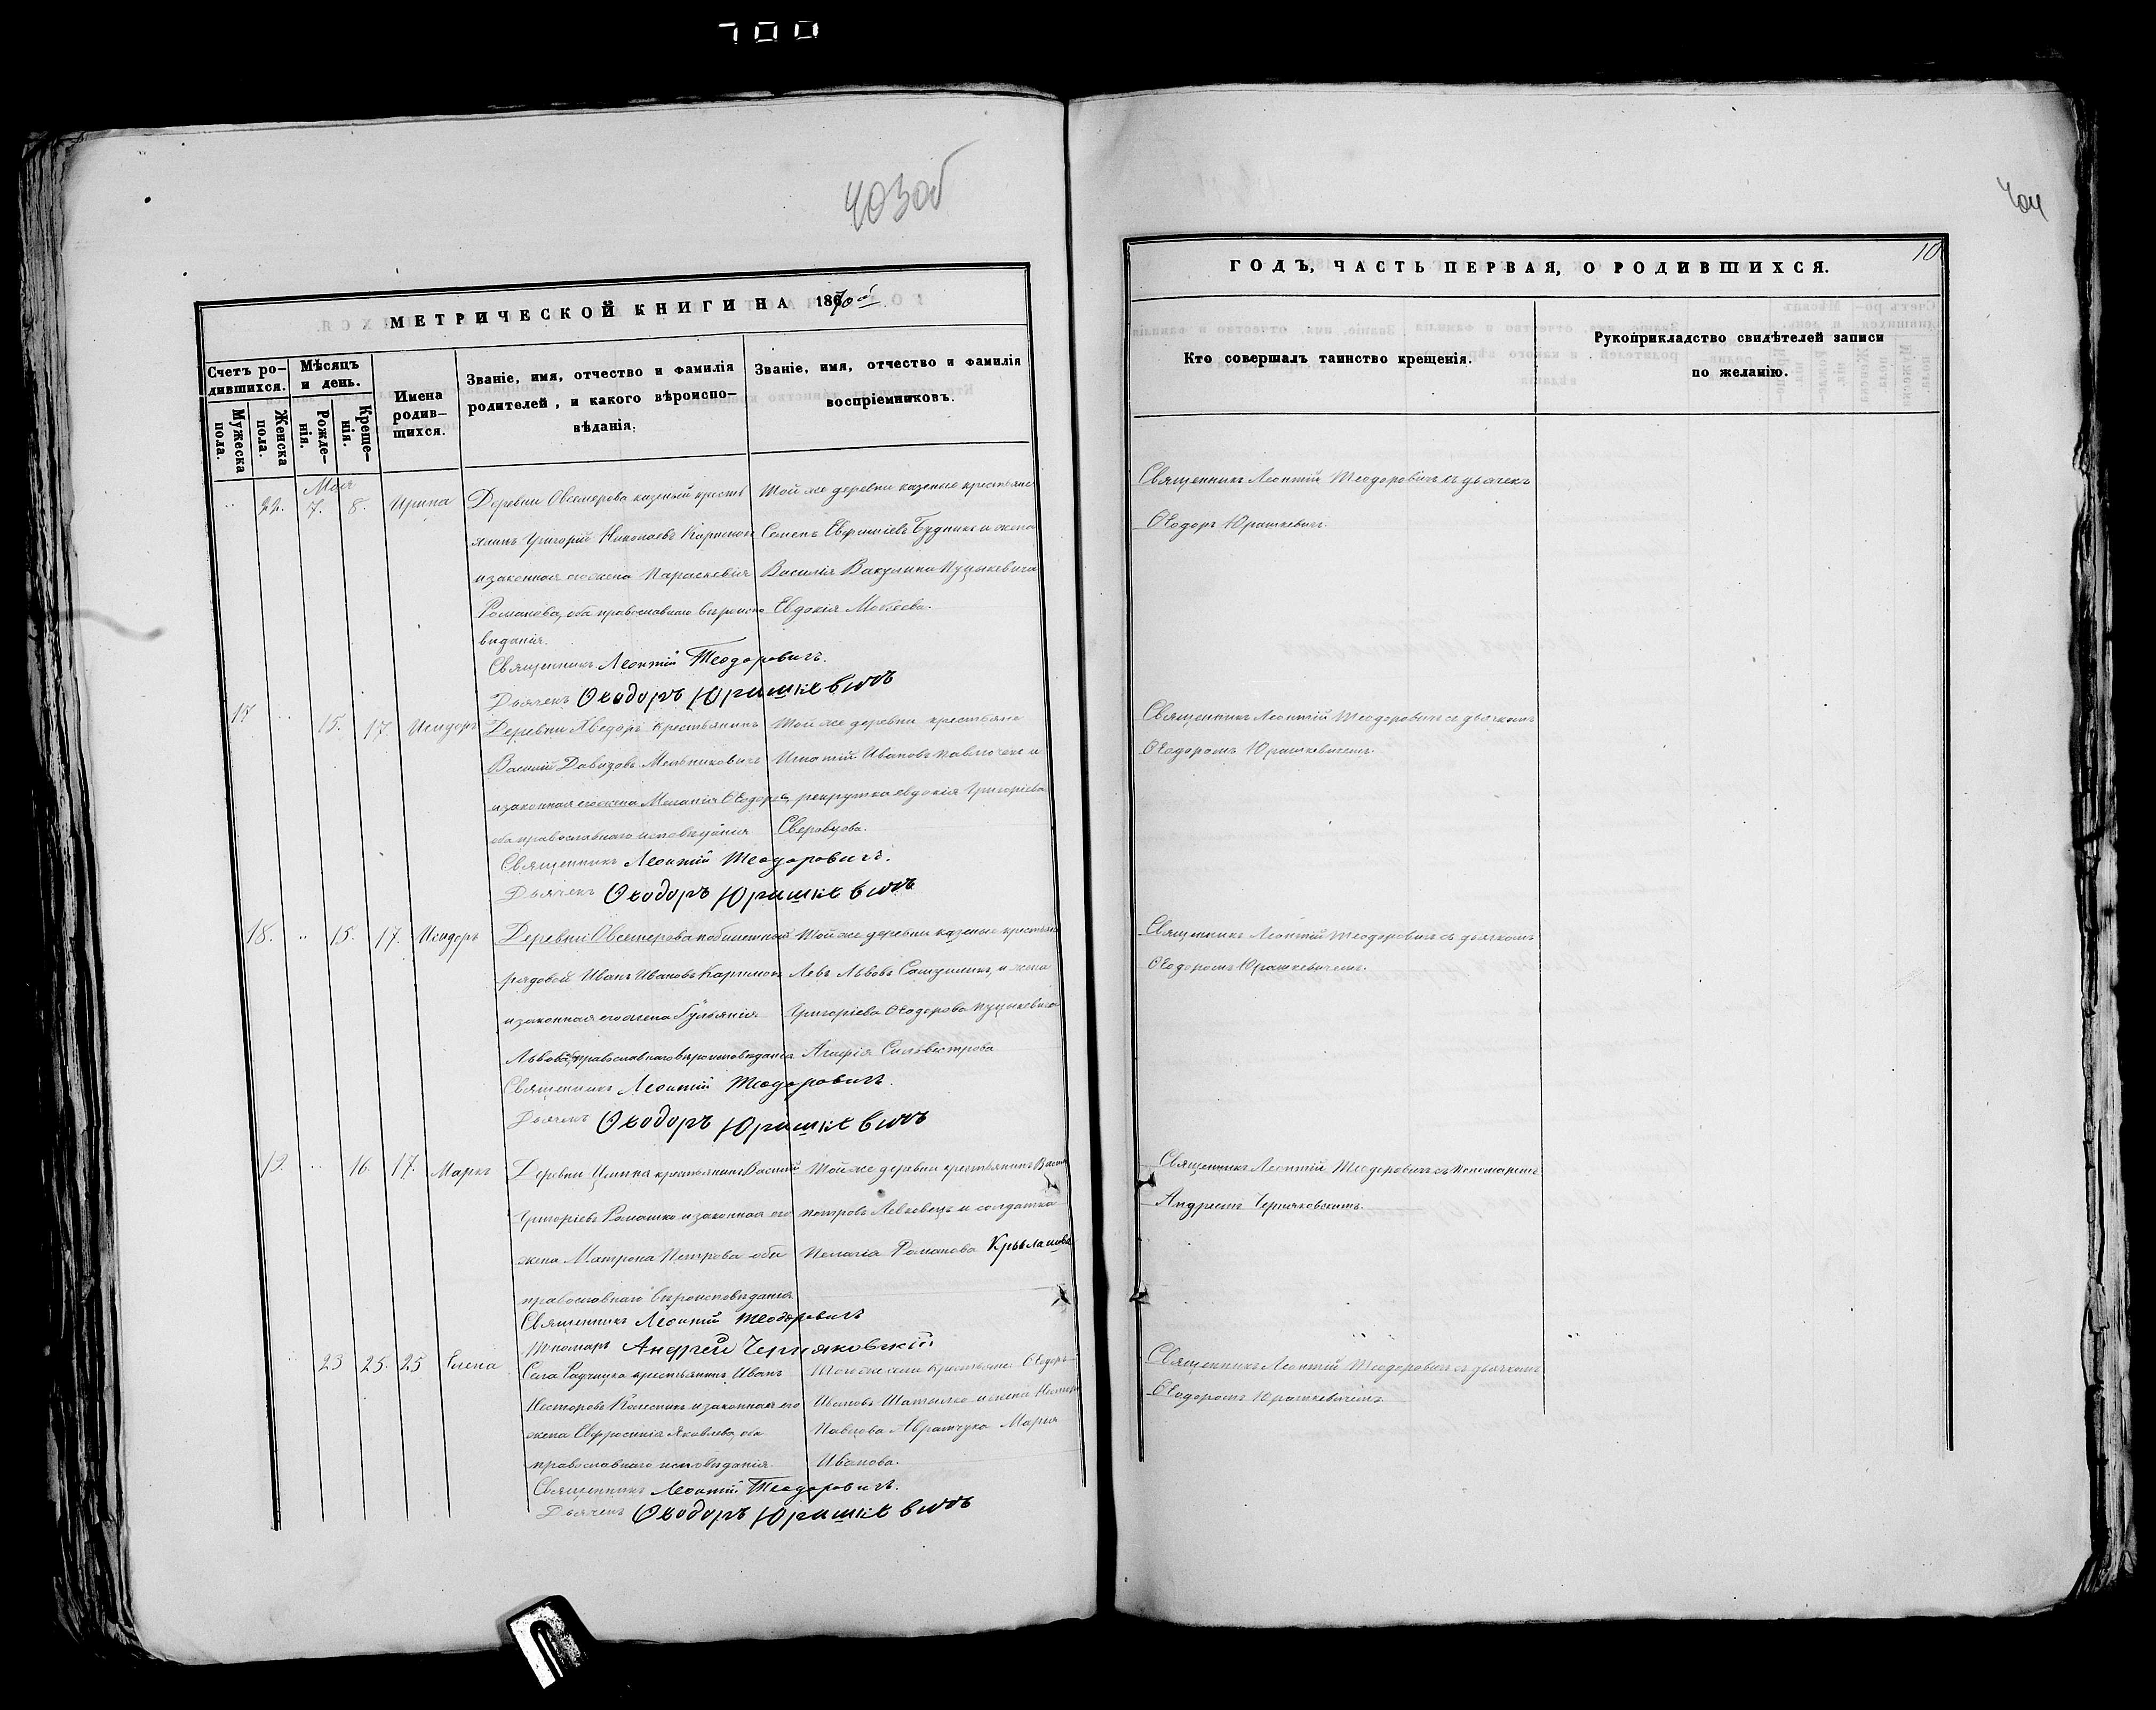 700
403об
404
МЕТРИЧЕСКОЙ КНИГИ НА 1870й
Счетъ ро-
дившихся.
Мужеска
пола.
Женска
пола.
Мѣсяцъ
и день.
Рожде-
нія.
Креще-
нія.
Имена
родив-
шихся.
Званіе, имя, отчество и фамилія
родителей, и какого вѣроиспо-
вѣданія.
Званіе, имя, отчество и фамилія
воспріемниковъ.
Мая
22. 7. 8. Ирина
Деревни казеный кресть
янинъ Григорій Николаевъ
и законная его жена Параскевія
Романова, оба православнаго вѣроиспо
вѣданія.
Священникъ Леонтій Теодоровичъ.
Дьячекъ Ѳеодоръ Юрашкевичъ
Той же деревни казеные крестьяне
Семенъ Евфиміевъ Будникъ и жена
Василія Вакулина Пуцыкевича
Евдокія Мокѣева.
17 15. 17. Исидоръ
Деревни крестьянинъ
Василій Давидовъ Мельниковичъ
и законная его жена Меланія Ѳеодорова,
оба православнаго исповѣданія
Священникъ Леонтій Теодоровичъ.
Дьячекъ Ѳеодоръ Юрашкевичъ
Той же деревни крестьяне
Игнатій Ивановъ Павлючекъ и
рекрутка Евдокія Григоріева
18. 15. 17. Исидоръ
Деревни
рядовой Иванъ Ивановъ
и законная его жена Іуліанія
Львова, оба православнаго вѣроисповѣданія
Священникъ Леонтій Теодоровичъ.
Дьячекъ Ѳеодоръ Юрашкевичъ
Той же деревни казеные крестьяне
Левъ Львовъ и жена
Григоріева Ѳеодорова Пуцыкевича
Агафія Сильвестрова
19. 16. 17. Маркъ
Деревни крестьянинъ Василій
Григоріевъ Ромашко и законная его
жена Матрона Петрова оба
православнаго вѣроисповѣданія
Священникъ Леонтій Теодоровичъ
Пономарь Андрей Черняковскій.
Той же деревни крестьянинъ
Петровъ Левковецъ и солдатка
Пелагія Романова
23 25. 25 Елена
Села Радчицка крестьянинъ Иванъ
Несторовъ Колесникъ и законная его
жена Евфросинія Яковлева, оба
православнаго исповѣданія.
Священникъ Леонтій Теодоровичъ.
Дьячекъ Ѳеодоръ Юрашкевичъ
Того же села крестьяне Ѳеодоръ
Ивановъ Шатыло и жена
Павлова Аврамчука Марія
Иванова.
10
ГОДЪ, ЧАСТЬ ПЕРВАЯ, О РОДИВШИХСЯ.
Кто совершалъ таинство крещенія.
Рукоприкладство свидѣтелей записи
по желанію.
Священникъ Леонтій Теодоровичъ съ дьячек
Ѳеодоръ Юрашкевичъ.
Священникъ Леонтій Теодоровичъ съ дьячкомъ
Ѳеодоромъ Юрашкевичемъ.
Священникъ Леонтій Теодоровичъ съ дьячкомъ
Ѳеодоромъ Юрашкевичемъ.
Священникъ Леонтій Теодоровичъ съ пономаремъ
Андреемъ Черняковскимъ.
Священникъ Леонтій Теодоровичъ съ дьячкомъ
Ѳеодоромъ Юрашкевичемъ.